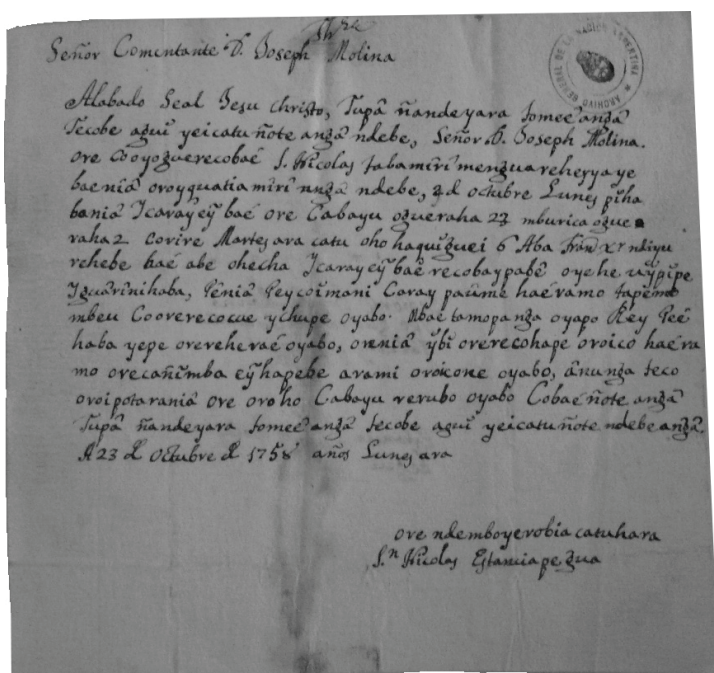 Señor Comentante D. Joseph Molina
ARCHIVO GENERAL DE LA NACION ARGENTINA
Alabado Seal Jesu Christo, Tupâ ñandeyara tomeê angâ
tecobe agui yeicatu ñote angâ ndebe, Señor D. Joseph Molina.
ore Cooyoguerecobaé S. Nicolas taba mirî mengua reherya ye
baeniâ oroyquatia mirî nngâ ndebe, 2 d octubre Lunes pîha
baniâ Ycaraÿ eÿ baé ore Cabayu ogueraha 23 mburica ogue
raha 2 corire Martes ara catu oho haquiguei 6 Aba Xr ndiyu
rehebe baé abe ohecha Ycaraÿ eÿ baê recobaypabê oyehe uÿpipe
Yguârînihaba, Pêniâ Peycoîmani Caray paûmê haéramo tapêmo
mbeu Coorerecocue ychupe oyabo. Mbae tamopanga oyapo Rey Peê
haba yepe orereheraé oyabo, oreniâ ÿbî orerecohape oroico haéra
mo orecañîmba eÿhapebe arami oroicone oyabo, ânunga teco
oroipotaraniâ ore oroho Cabayu rerubo oyabo Cobaé ñote angâ
Tupâ ñandeyara tomeê angâ tecobe agui yeicatu ñote ndebe angâ.
A 23 d octubre d 1758 años Lunes ara
ore ndemboyerobia catuhara
S.n Nicolas Estancia pegua